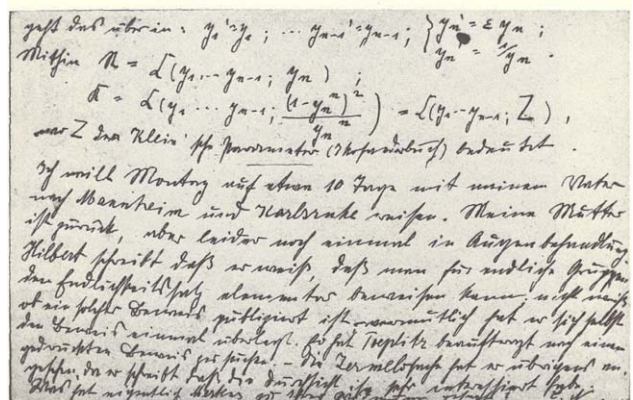 geht das über in: y₁' = y₁ ; ... y'ₙ₋₁ = yₙ₋₁ ; { yₙ' = ε yₙ ;
Mithin K = Ω(y₁ ... yₙ₋₁ ; yₙ) ; yₙ' = 1/yₙ .
K = Ω(y₁ ... yₙ₋₁ ; (1-yₙⁿ)²/yₙⁿ) = Ω(y₁ ... yₙ₋₁ ; Z) ,
wo Z den Klein'sche Parameter (Ikosaederbuch) bedeutet .
Ich will Montag auf etwa 10 Tage mit meinem Vater
nach Mannheim und Karlsruhe reisen. Meine Mutter
ist zurück, aber leider noch einmal in Augenbehandlung.
Hilbert schreibt daß er weiß, daß man für endliche Gruppen
den Endlichkeitssatz elementar beweisen kann; nicht weiß
ob ein solcher Beweis publiziert ist - vermutlich hat er sich selbst
den Beweis einmal überlegt. Er hat Toeplitz beauftragt nach einem
gedruckten Beweis zu suchen. - Die hat er übrigens an-
gesehen, da er schreibt daß die Durchsicht ihn sehr interessiert habe.
Was hat eigentlich